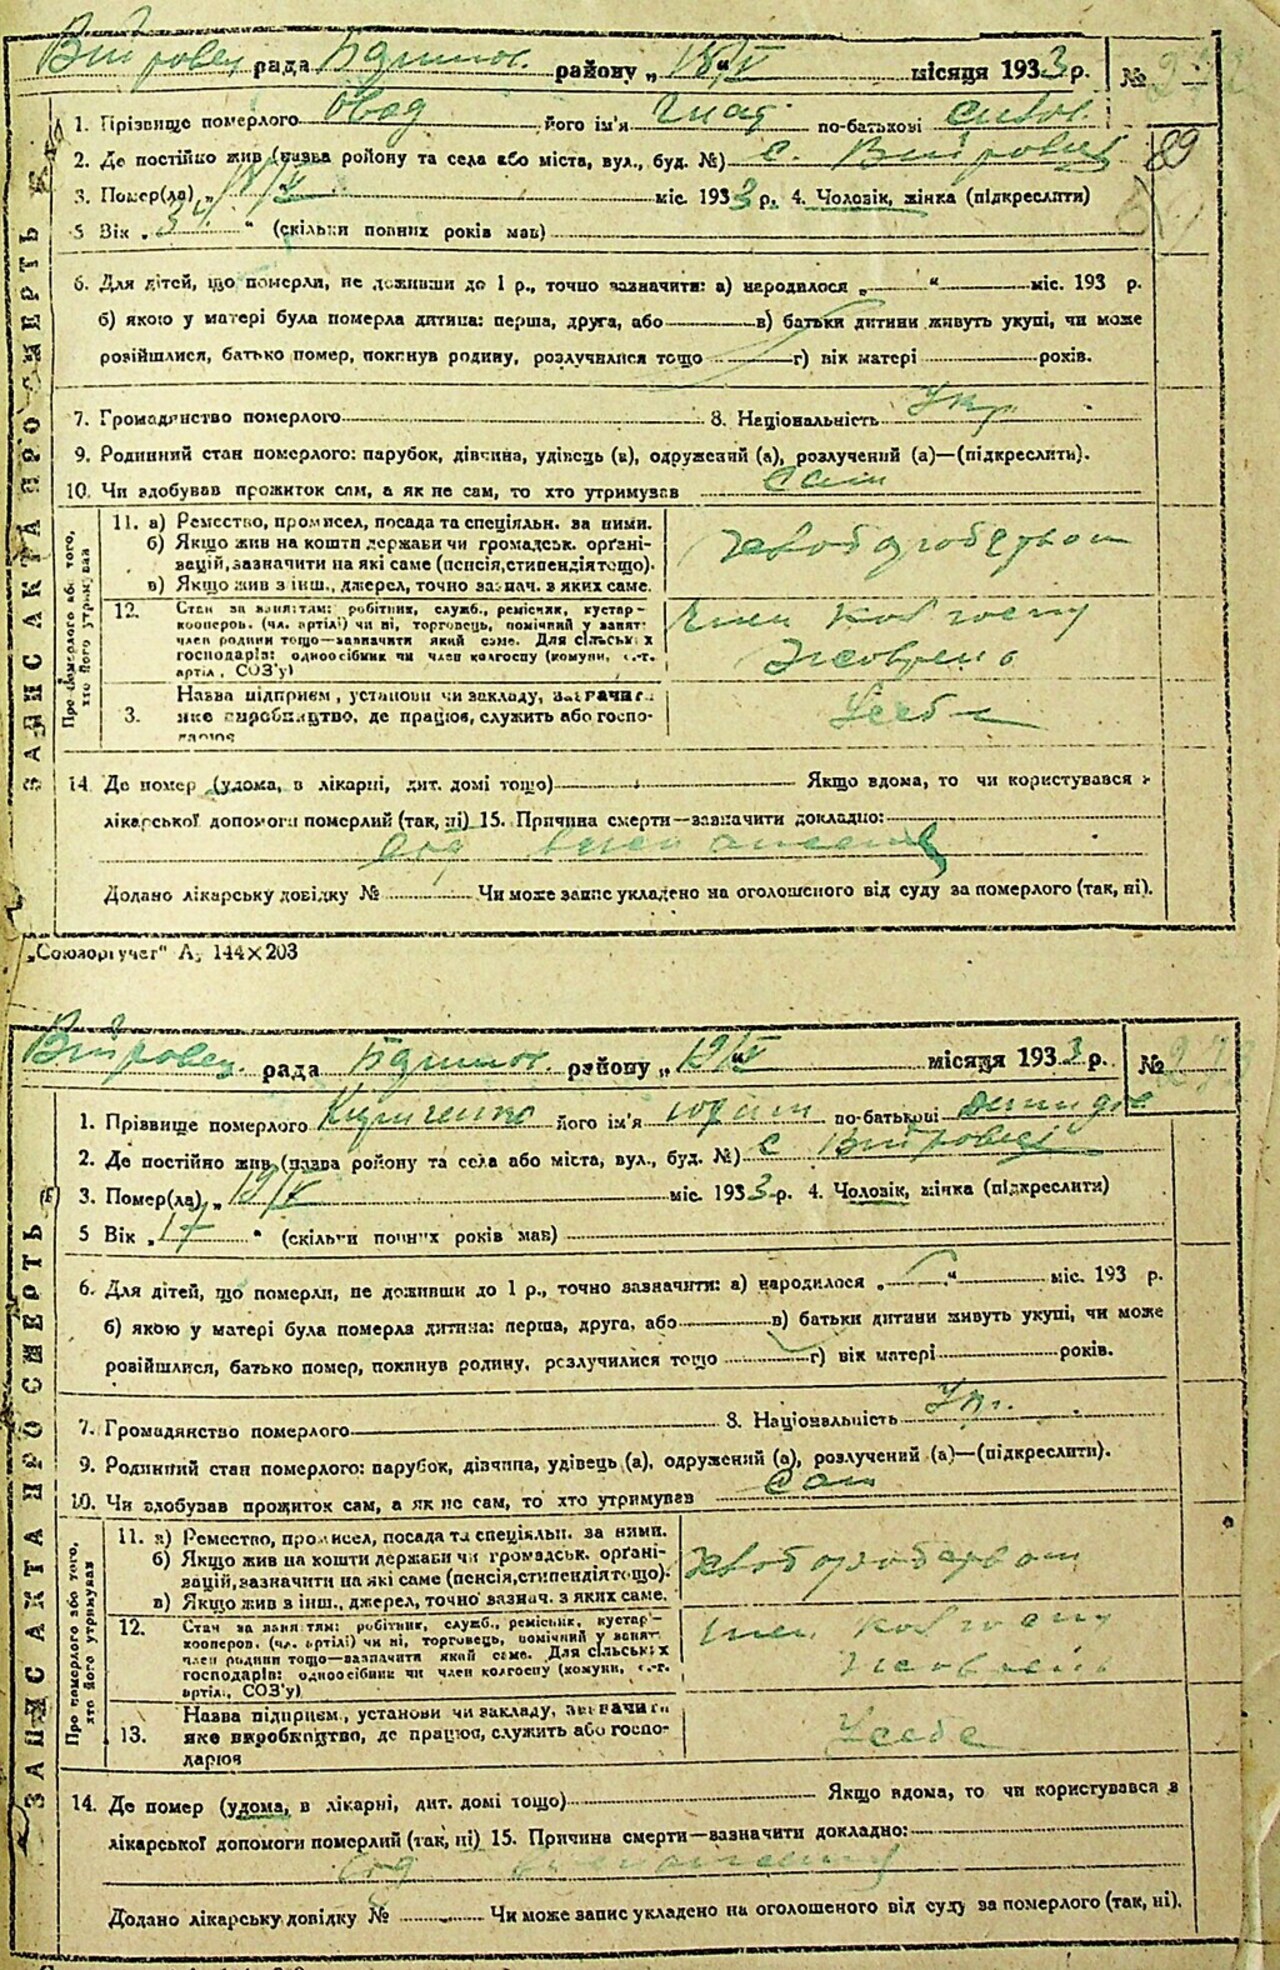 рада району „18/V" місяця 1933 р. №
1. Прізвище померлого Овод його ім'я Гнат по-батькові
2. Де постійно жив (назва ройону та села або міста, вул., буд. №) с.
3. Помер(ла) „18/V міс. 1933 р. 4. Чоловік, жінка (підкреслити)
89
5 Вік „34" (скільки повних років мав)
6. Для дітей, що померли, не доживши до 1 р., точно зазначити: а) народилося „ " міс. 193 р.
б) якою у матері була померла дитина: перша, друга, або в) батьки дитини живуть укупі, чи може
розійшлися, батько помер, покинув родину, розлучилися тощо г) вік матері рохів.
7. Громадянство померлого 8. Національність Укр
9. Родинний стан померлого: парубок, дівчина, удівець (а), одружений (а), розлучений (а)—(підкреслити).
10. Чи здобував прожиток сам, а як не сам, то хто утримував Сам
11. а) Ремество, промисел, посада та спеціяльн. за ними.
б) Якщо жив на кошти держави чи громадськ. орґані-
зацій, зазначити на які саме (пенсія, стипендія тощо).
в) Якщо жив з інш., джерел, точно зазнач. в яких саме.
Хлібороб
12. Стан за заняттям: робітник, служб., ремісник, кустар-
кооперов. (чл. артілі) чи ні, торговець, помічний у занят.
член родини тощо—зазначити який саме. Для сільських
господарів: одноосібник чи член колгоспу (комуни, с.-г.
артіл., СОЗ'у)
Член колгоспу
3. Назва підприєм., установи чи закладу, зазначити
яке виробництво, де працює, служить або госпо-
дарює
У себе
14. Де помер (удома, в лікарні, дит. домі тощо) Якщо вдома, то чи користувався з
лікарської допомоги померлий (так, ні) 15. Причина смерти—зазначити докладно:
од
Додано лікарську довідку № Чи може запис укладено на оголошеного від суду за померлого (так, ні).
ЗАПИС АКТА ПРО СМЕРТЬ
Про померлого або того,
хто його утримував
„Союзоргучет" А₅ 144×203
рада району „19/V" місяця 1933 р. № 273
1. Прізвище померлого Кириченко його ім'я по-батькові
2. Де постійно жив (назва ройону та села або міста, вул., буд. №) с
3. Помер(ла) „19/V міс. 1933 р. 4. Чоловік, жінка (підкреслити)
5 Вік „17" (скільки повних років мав)
6. Для дітей, що померли, не доживши до 1 р., точно зазначити: а) народилося „ " міс. 193 р.
б) якою у матері була померла дитина: перша, друга, або в) батьки дитини живуть укупі, чи може
розійшлися, батько помер, покинув родину, розлучилися тощо г) вік матері років.
7. Громадянство померлого 8. Національність Укр.
9. Родинний стан померлого: парубок, дівчина, удівець (а), одружений (а), розлучений (а)—(підкреслити).
10. Чи здобував прожиток сам, а як не сам, то хто утримував Сам
11. а) Ремество, промисел, посада та спеціяльн. за ними.
б) Якщо жив на кошти держави чи громадськ. орґані-
зацій, зазначити на які саме (пенсія, стипендія тощо).
в) Якщо жив з інш., джерел, точно зазнач. з яких саме.
12. Стан за заняттям: робітник, служб., ремісник, кустар-
кооперов. (чл. артілі) чи ні, торговець, помічний у занят.
член родини тощо—зазначити який саме. Для сільських
господарів: одноосібник чи член колгоспу (комуни, с.-г.
артіл., СОЗ'у)
член колгоспу
13. Назва підприєм., установи чи закладу, зазначити
яке виробництво, де працює, служить або госпо-
дарює
У себе
14. Де помер (удома, в лікарні, дит. домі тощо) Якщо вдома, то чи користувався з
лікарської допомоги померлий (так, ні) 15. Причина смерти—зазначити докладно:
од
Додано лікарську довідку № Чи може запис укладено на оголошеного від суду за померлого (так, ні).
ЗАПИС АКТА ПРО СМЕРТЬ
Про померлого або того,
хто його утримував